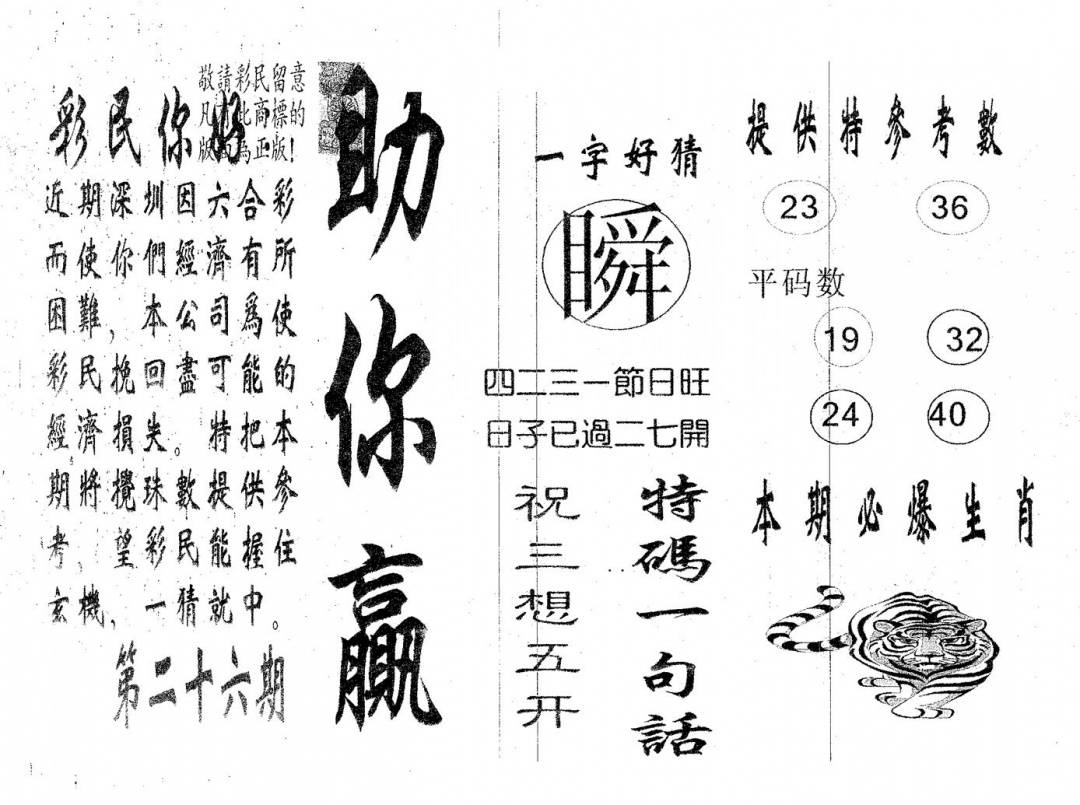 敬請彩民留意
凡 此商標的
版 為正版!
彩民你好
近期深圳因六合彩
而使你們經濟有所
困難,本公司爲使
彩民挽回盡可能的
經濟損失。特把本
期將攪珠數提供參
考,望彩民能握住
玄機,一猜就中。
第二十六期
助你贏
一字好猜
瞬
四二三一節日旺
日子已過二七開
特碼一句話
祝三想五开
提供特參考數
23 36
平码数
19 32
24 40
本期必爆生肖